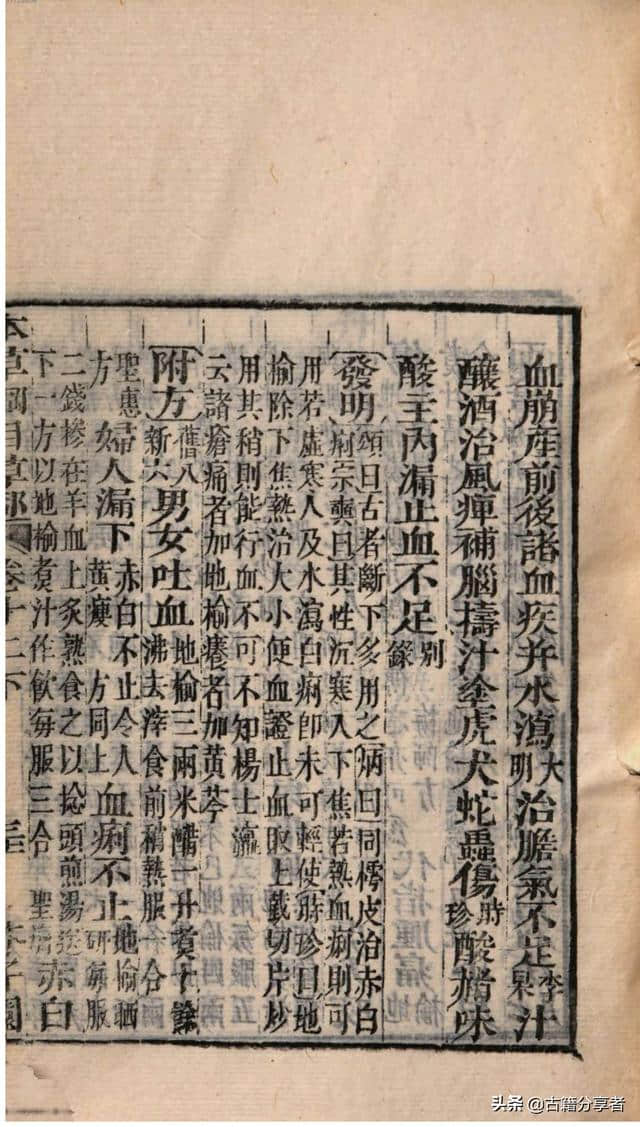 血崩產前後諸血疾并水瀉大明治膽氣不足李杲汁
釀酒治風痺補腦擣汁塗虎犬蛇蟲傷時珍酸赭味
酸主內漏止血不足別錄
發明頌曰古者斷下多用之病曰同樗皮治赤白
痢宗奭曰其性沉寒入下焦若熱血痢則可
用若虛寒人及水瀉白痢卽未可輕使時珍曰地
榆除下焦熱治大小便血證止血取上截切片炒
用其稍則能行血不可不知楊士瀛
云諸瘡痛者加地榆癢者加黃芩
附方舊八新六男女吐血地榆三兩米醋一升煑十餘沸去滓食前稍熱服一合
聖惠方婦人漏下赤白不止令人黃瘦方同上血痢不止地榆晒研每服
二錢摻在羊血上炙熟食之以捻頭煎湯送下一方以地榆煑汁作飲每服三合聖濟赤白
本草綱目草部卷十二下芥子園
头条 @古籍分享者